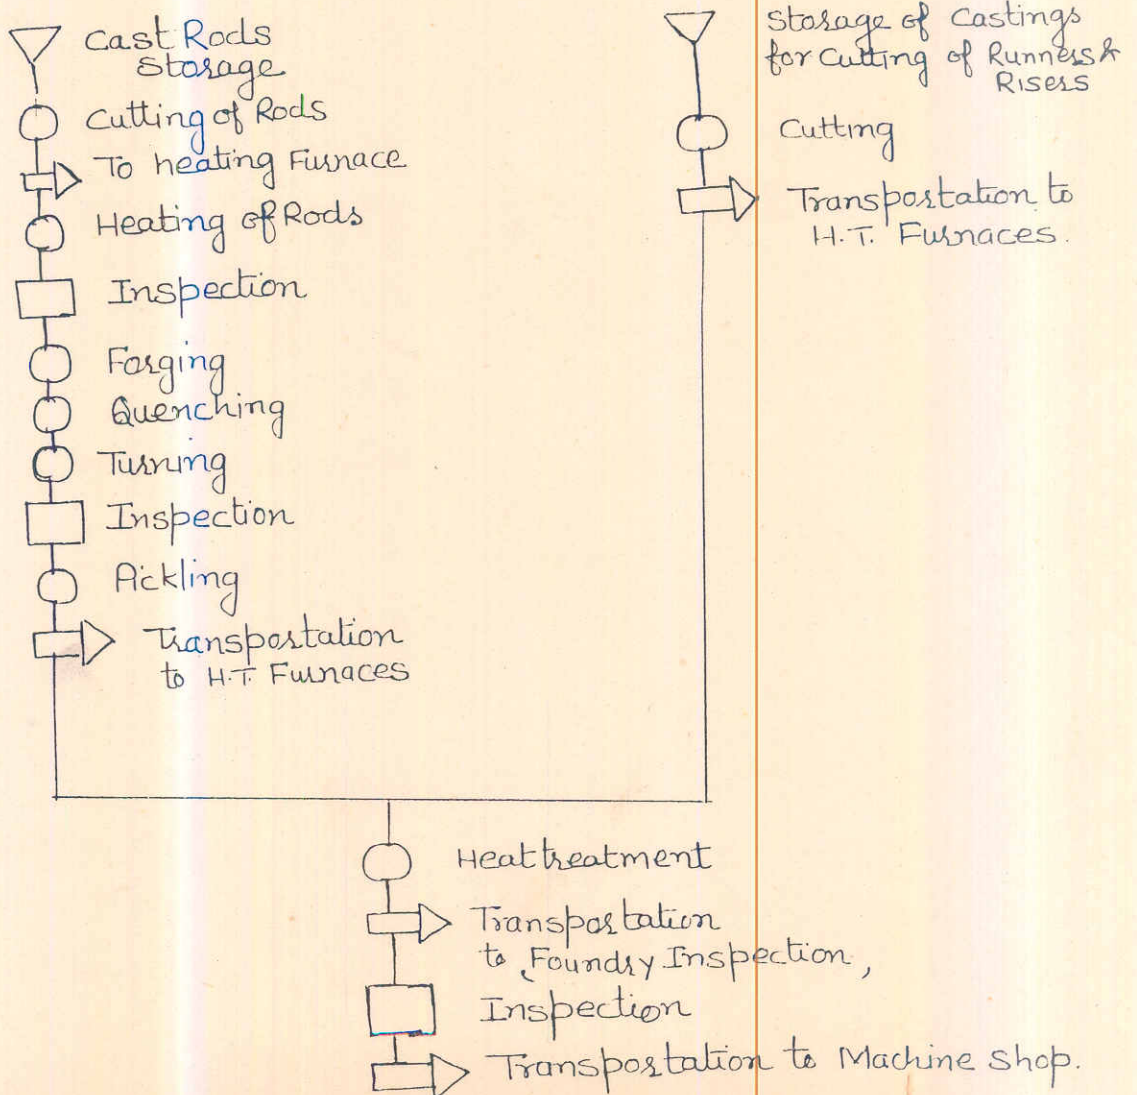 Cast Rods
Storage
Cutting of Rods
To heating Furnace
Heating of Rods
Inspection
Forging
Quenching
Turning
Inspection
Pickling
Transportation
to H.T. Furnaces
Storage of Castings
for Cutting of Runners &
Risers
Cutting
Transportation to
H.T. Furnaces.
Heat treatment
Transportation
to Foundry Inspection,
Inspection
Transportation to Machine Shop.